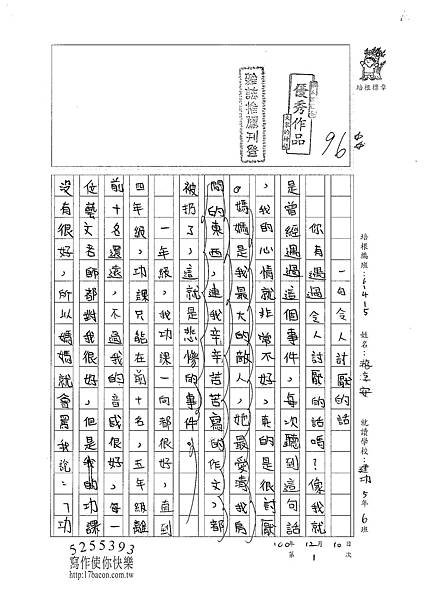 培根標章
優秀作品
雜誌推薦刊登
96
培根編班：61415
就讀學校：建功5年6班
100年12月10日
第1次
一句令人討厭的話
你有遇過令人討厭的話嗎？像我就
是曾經遇過這個事件，每次聽到這句話
，我的心情就非常不好，真的是很討厭
。媽媽是我最大的敵人，她最愛清我房
間的東西，連我辛辛苦苦寫的作文，都
被扔了，這就是悲慘的事件。
一年級，我功課一向都很好，直到
四年級，功課只能在前十名，五年級離
前十名還遠，不過我的音感很好，每一
任藝文老師都對我很好，但是我的功課
沒有很好，所以媽媽就會罵我說：「功
5255393
寫作使你快樂
http://17bacon.com.tw